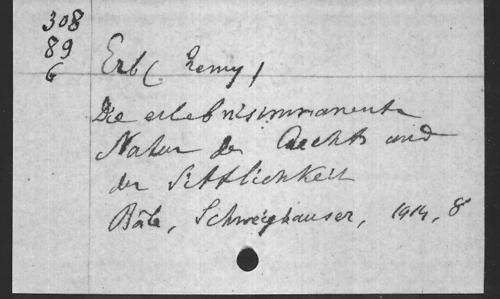 308
89
6
Erb (Remy)
Die erlebnisimmanente
Natur des Rechts und
der Sittlichkeit
Bâle, Schweighauser, 1914, 8°